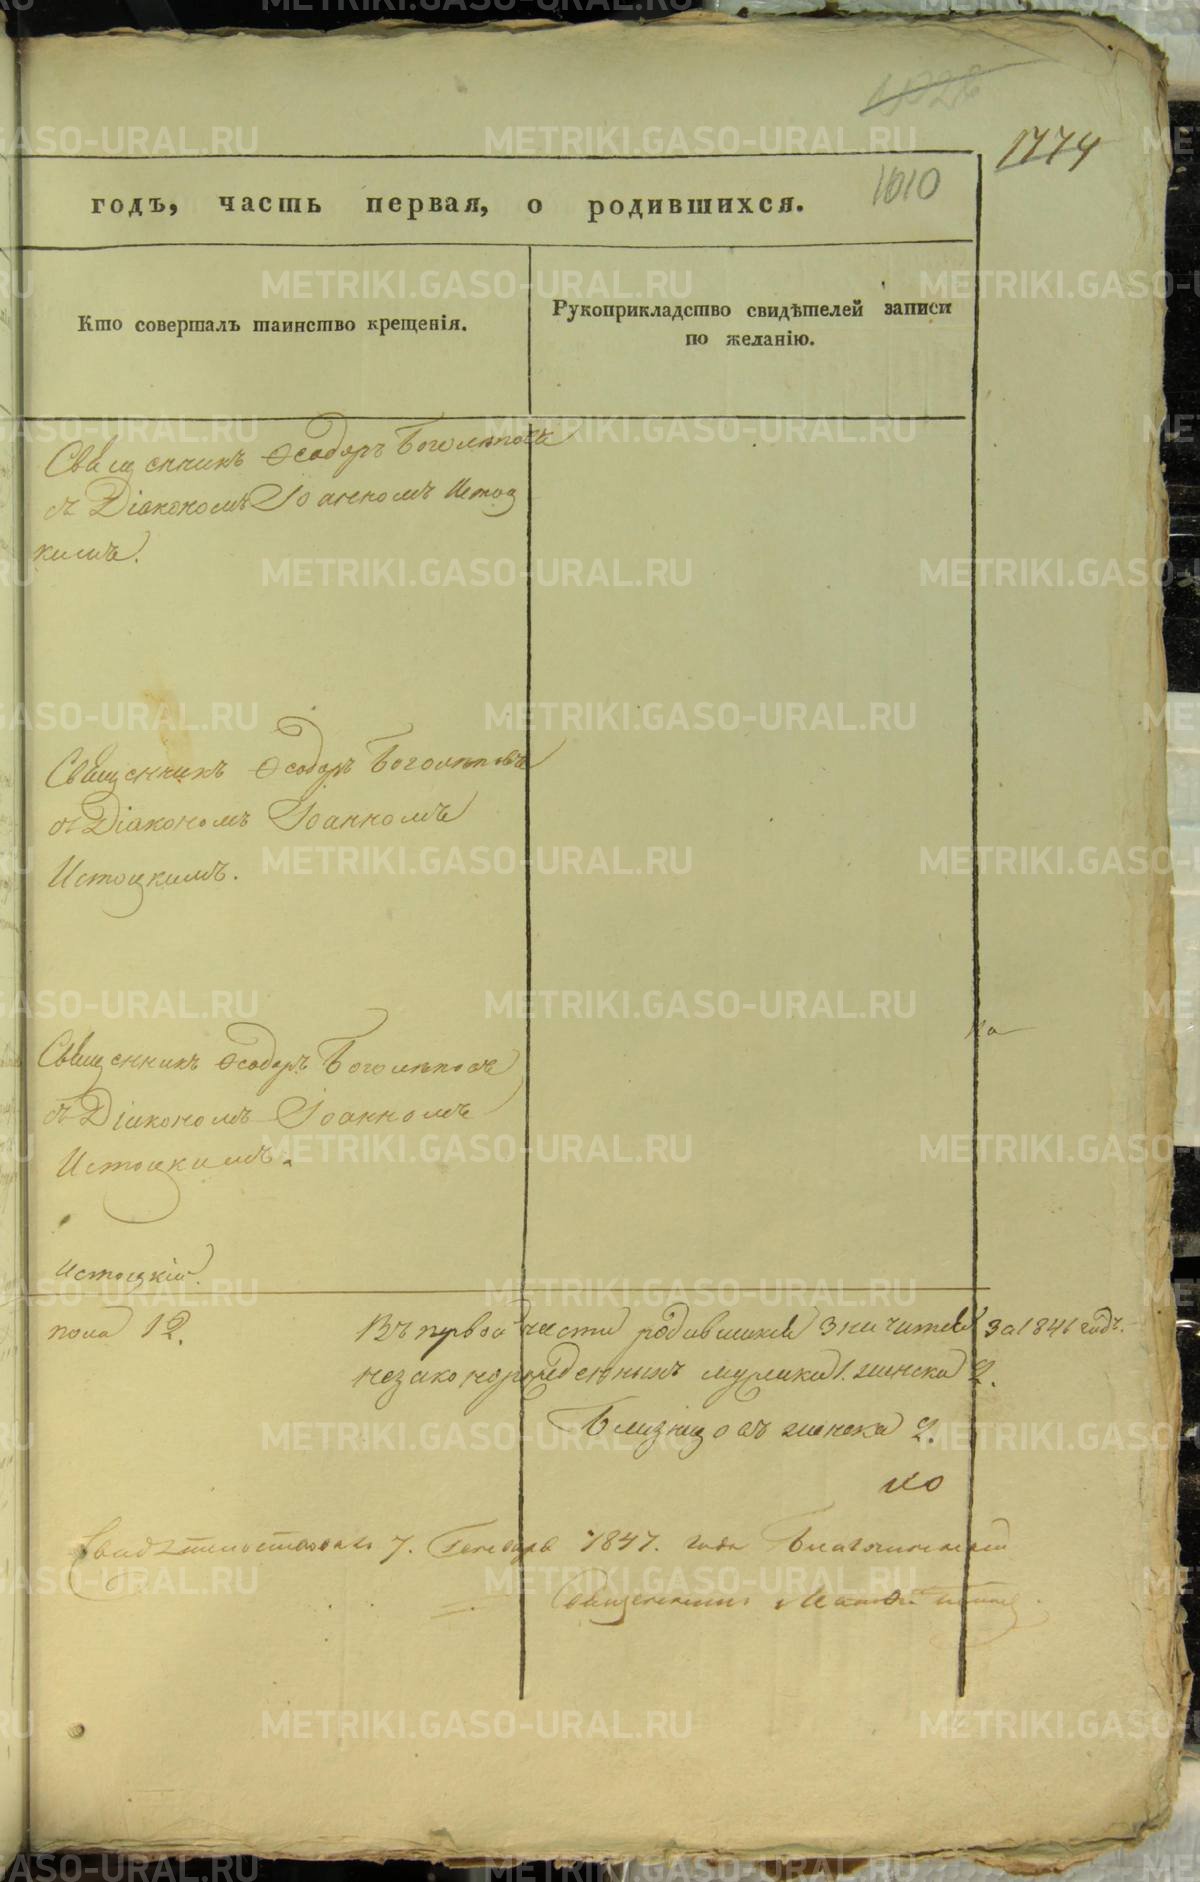 1026
1774
1010
годъ, часть первая, о родившихся.
Кто совершалъ таинство крещенія.
Рукоприкладство свидѣтелей записи
по желанію.
Священникъ Ѳеодоръ Боголѣповъ
съ Діакономъ Іоанномъ Истоц
кимъ.
Священникъ Ѳеодоръ Боголѣповъ
съ Діакономъ Іоанномъ
Истоцкимъ.
Священникъ Ѳеодоръ Боголѣповъ
съ Діакономъ Іоанномъ
Истоцкимъ.
Истоцкій.
пола 12.
Въ первой части родившихся значится за 1846 годъ.
незаконорожденныхъ мужска 1. женска 2.
Близнецовъ женска 2.
Свидетельствовалъ 7. Генваря 1847. года Благочинный
Священникъ
METRIKI.GASO-URAL.RU